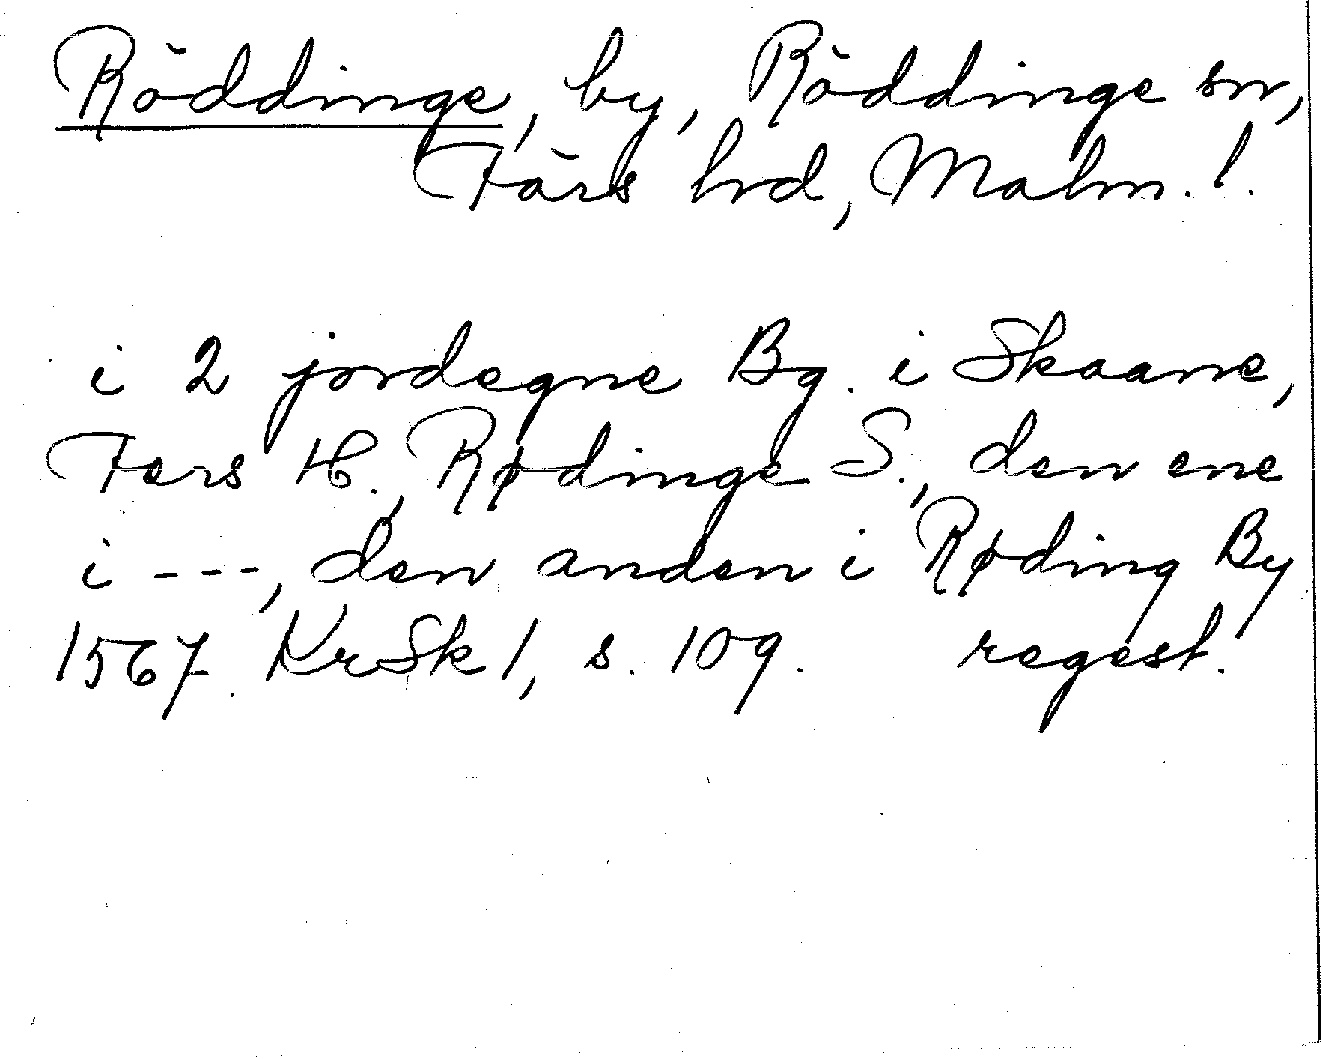 Röddinge, by, Röddinge sn,
Färs hrd, Malm. l.
i 2 jordegne Bg. i Skaane,
Fers H., Rødinge S., den ene
i ---, den anden i Røding By
1567. KrSk 1, s. 109. regest.